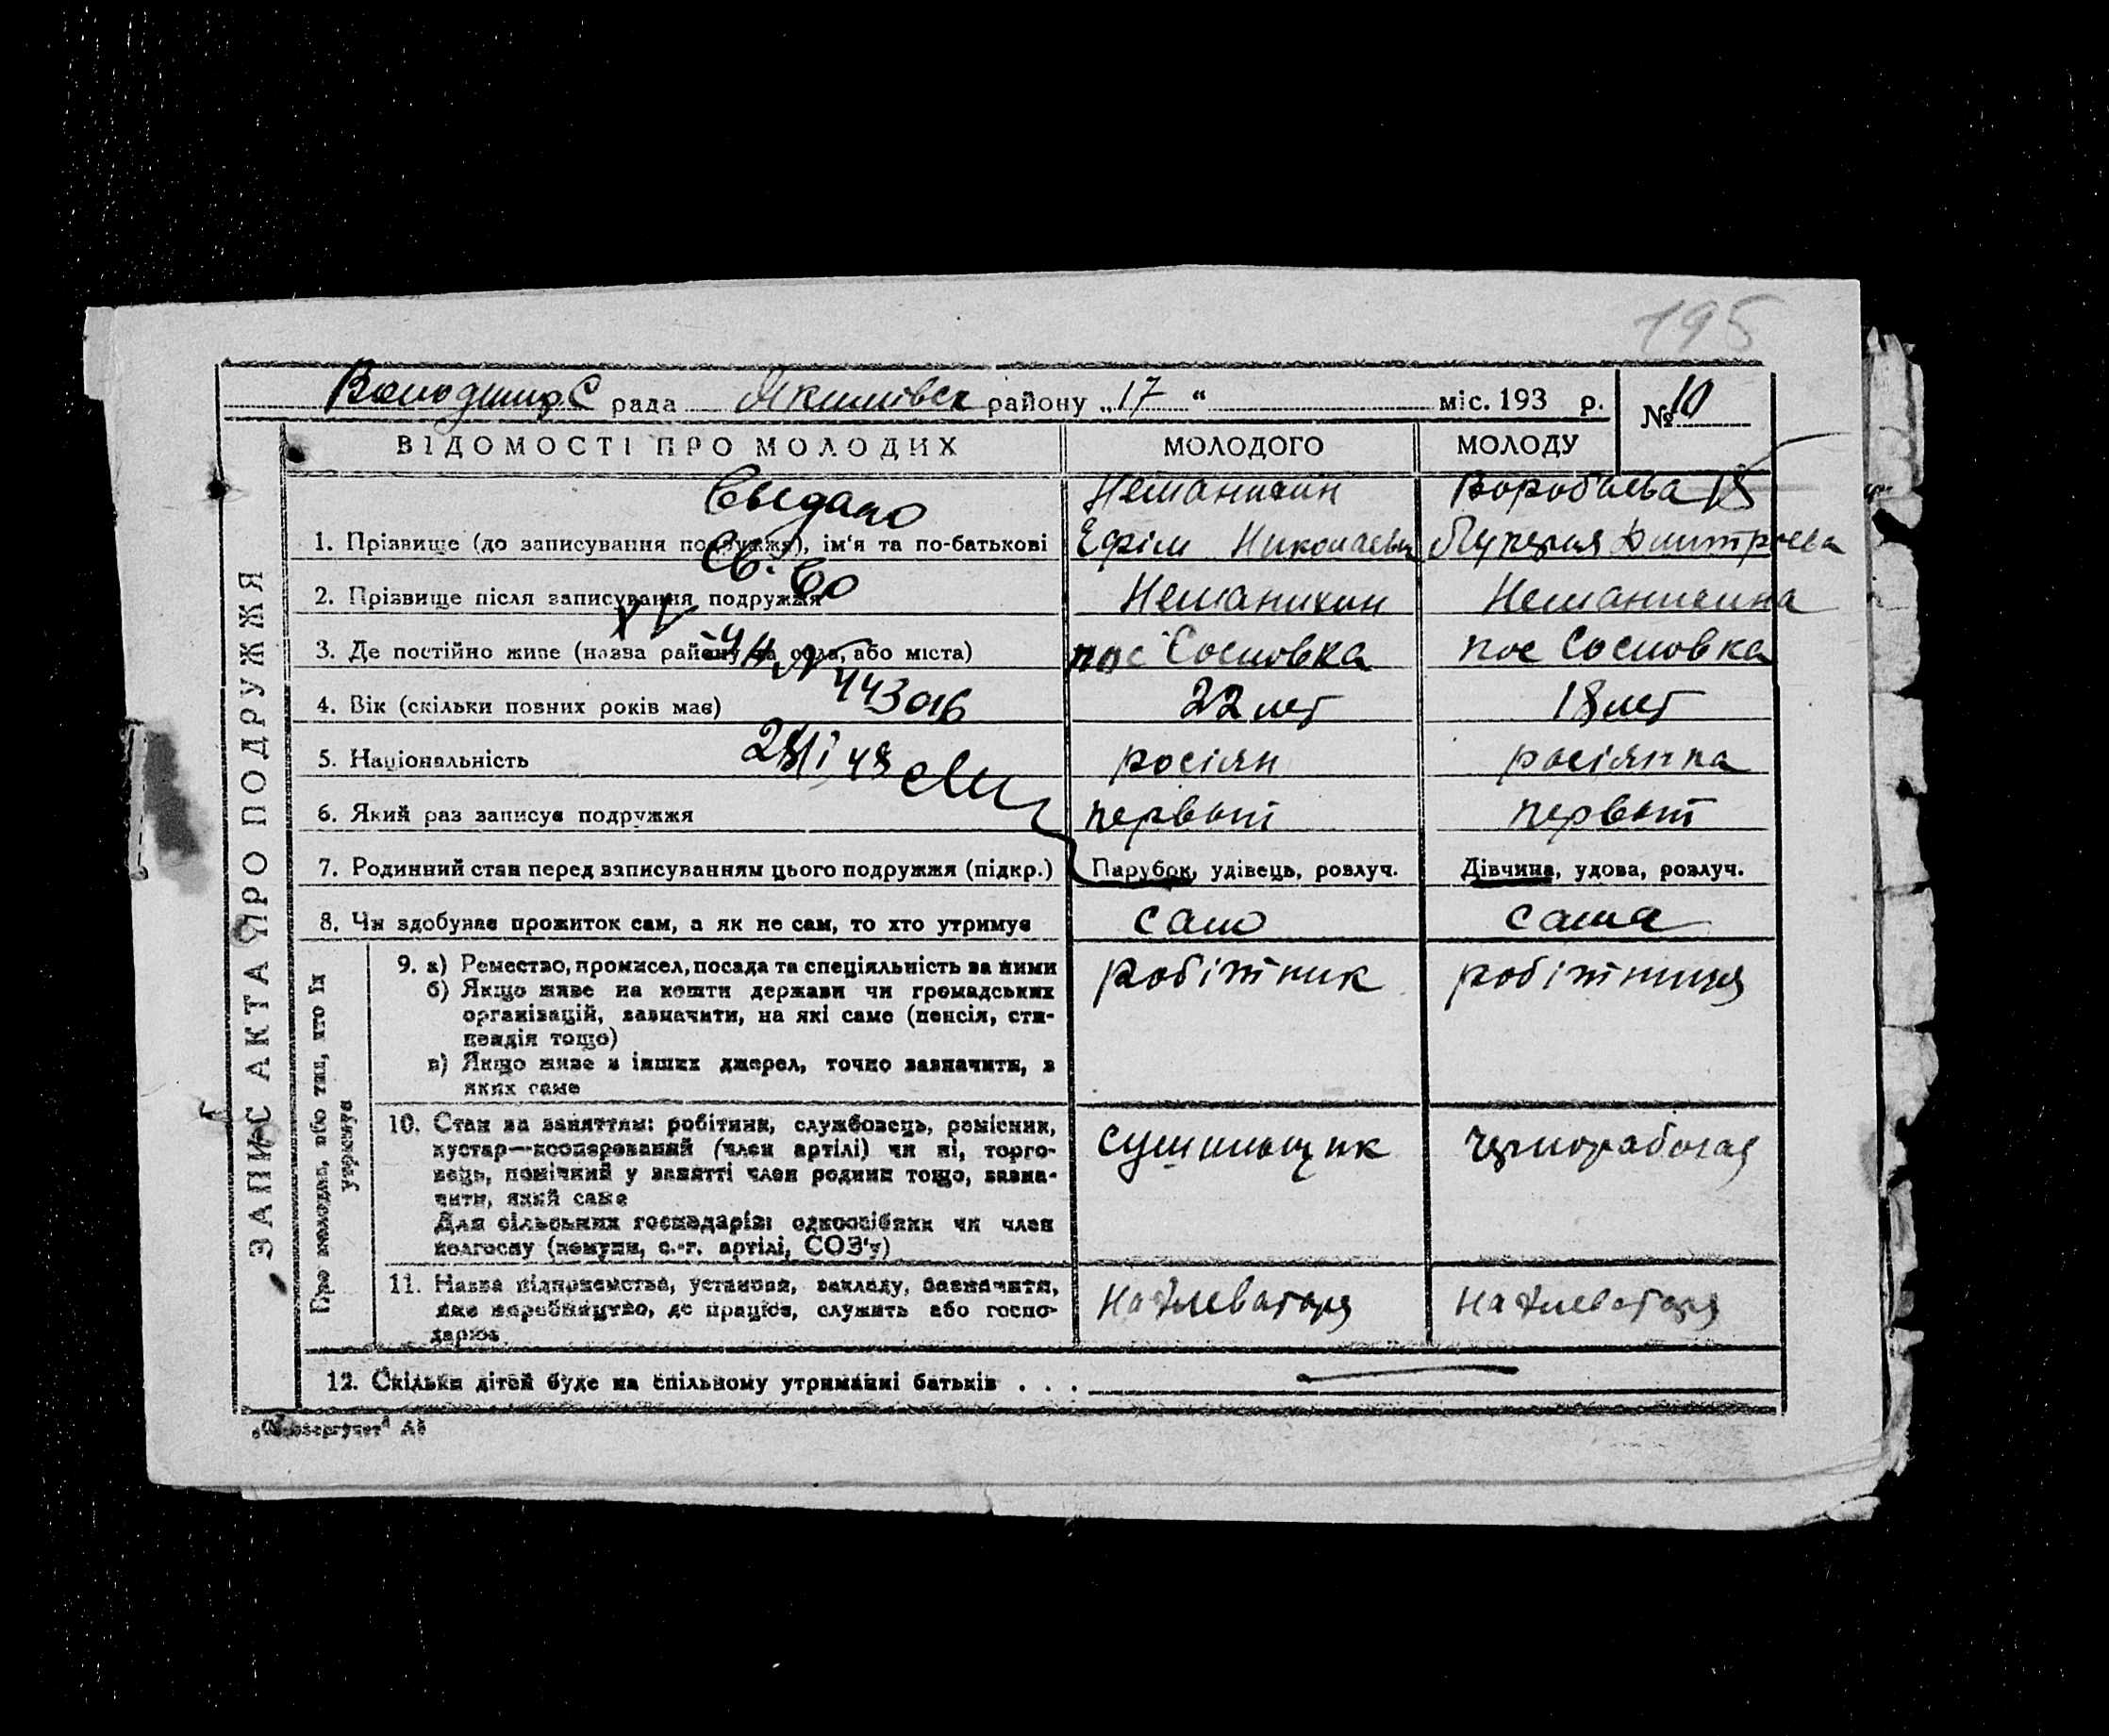 195
Володимир.С рада Якимівск району „17“ міс. 193 р. № 10
ЗАПИС АКТА ПРО ПОДРУЖЖЯ
ВІДОМОСТІ ПРО МОЛОДИХ МОЛОДОГО МОЛОДУ
Выдано Неманихин Воробьева
1. Прізвище (до записування подружжя), ім'я та по-батькові Ефім Николаевич Дмитриева
Св. во
2. Прізвище після записування подружжя Неманихин Неманихина
3. Де постійно живе (назва району та села, або міста) пос Сосновка пос Сосновка
XV-УН № 443016
4. Вік (скільки повних років має) 22 лет 18 лет
5. Національність росіян росіянка
6. Який раз записує подружжя первый первый
7. Родинний стан перед записуванням цього подружжя (підкр.) Парубок, удівець, розлуч. Дівчина, удова, розлуч.
8. Чи здобуває прожиток сам, а як не сам, то хто утримує само сама
Про молодих, або тих, хто їх утримує
9. а) Ремество, промисел, посада та спеціяльність за ними робітник робітниця
б) Якщо живе на кошти держави чи громадських
організацій, зазначити, на які саме (пенсія, сти-
пендія тощо)
в) Якщо живе з інших джерел, точно зазначити, з
яких саме
10. Стан за заняттям: робітник, службовець, ремісник, сушильщик чернорабочая
кустар—кооперований (член артілі) чи ні, торго-
вець, помічний у занятті член родини тощо, зазна-
чити, який саме
Для сільських господарів: одноосібник чи член
колгоспу (комуни, с.-г. артілі, СОЗ'у)
11. Назва підприємства, установи, закладу, зазначити,
яке виробництво, де працює, служить або госпо-
дарює
12. Скільки дітей буде на спільному утриманні батьків . . .